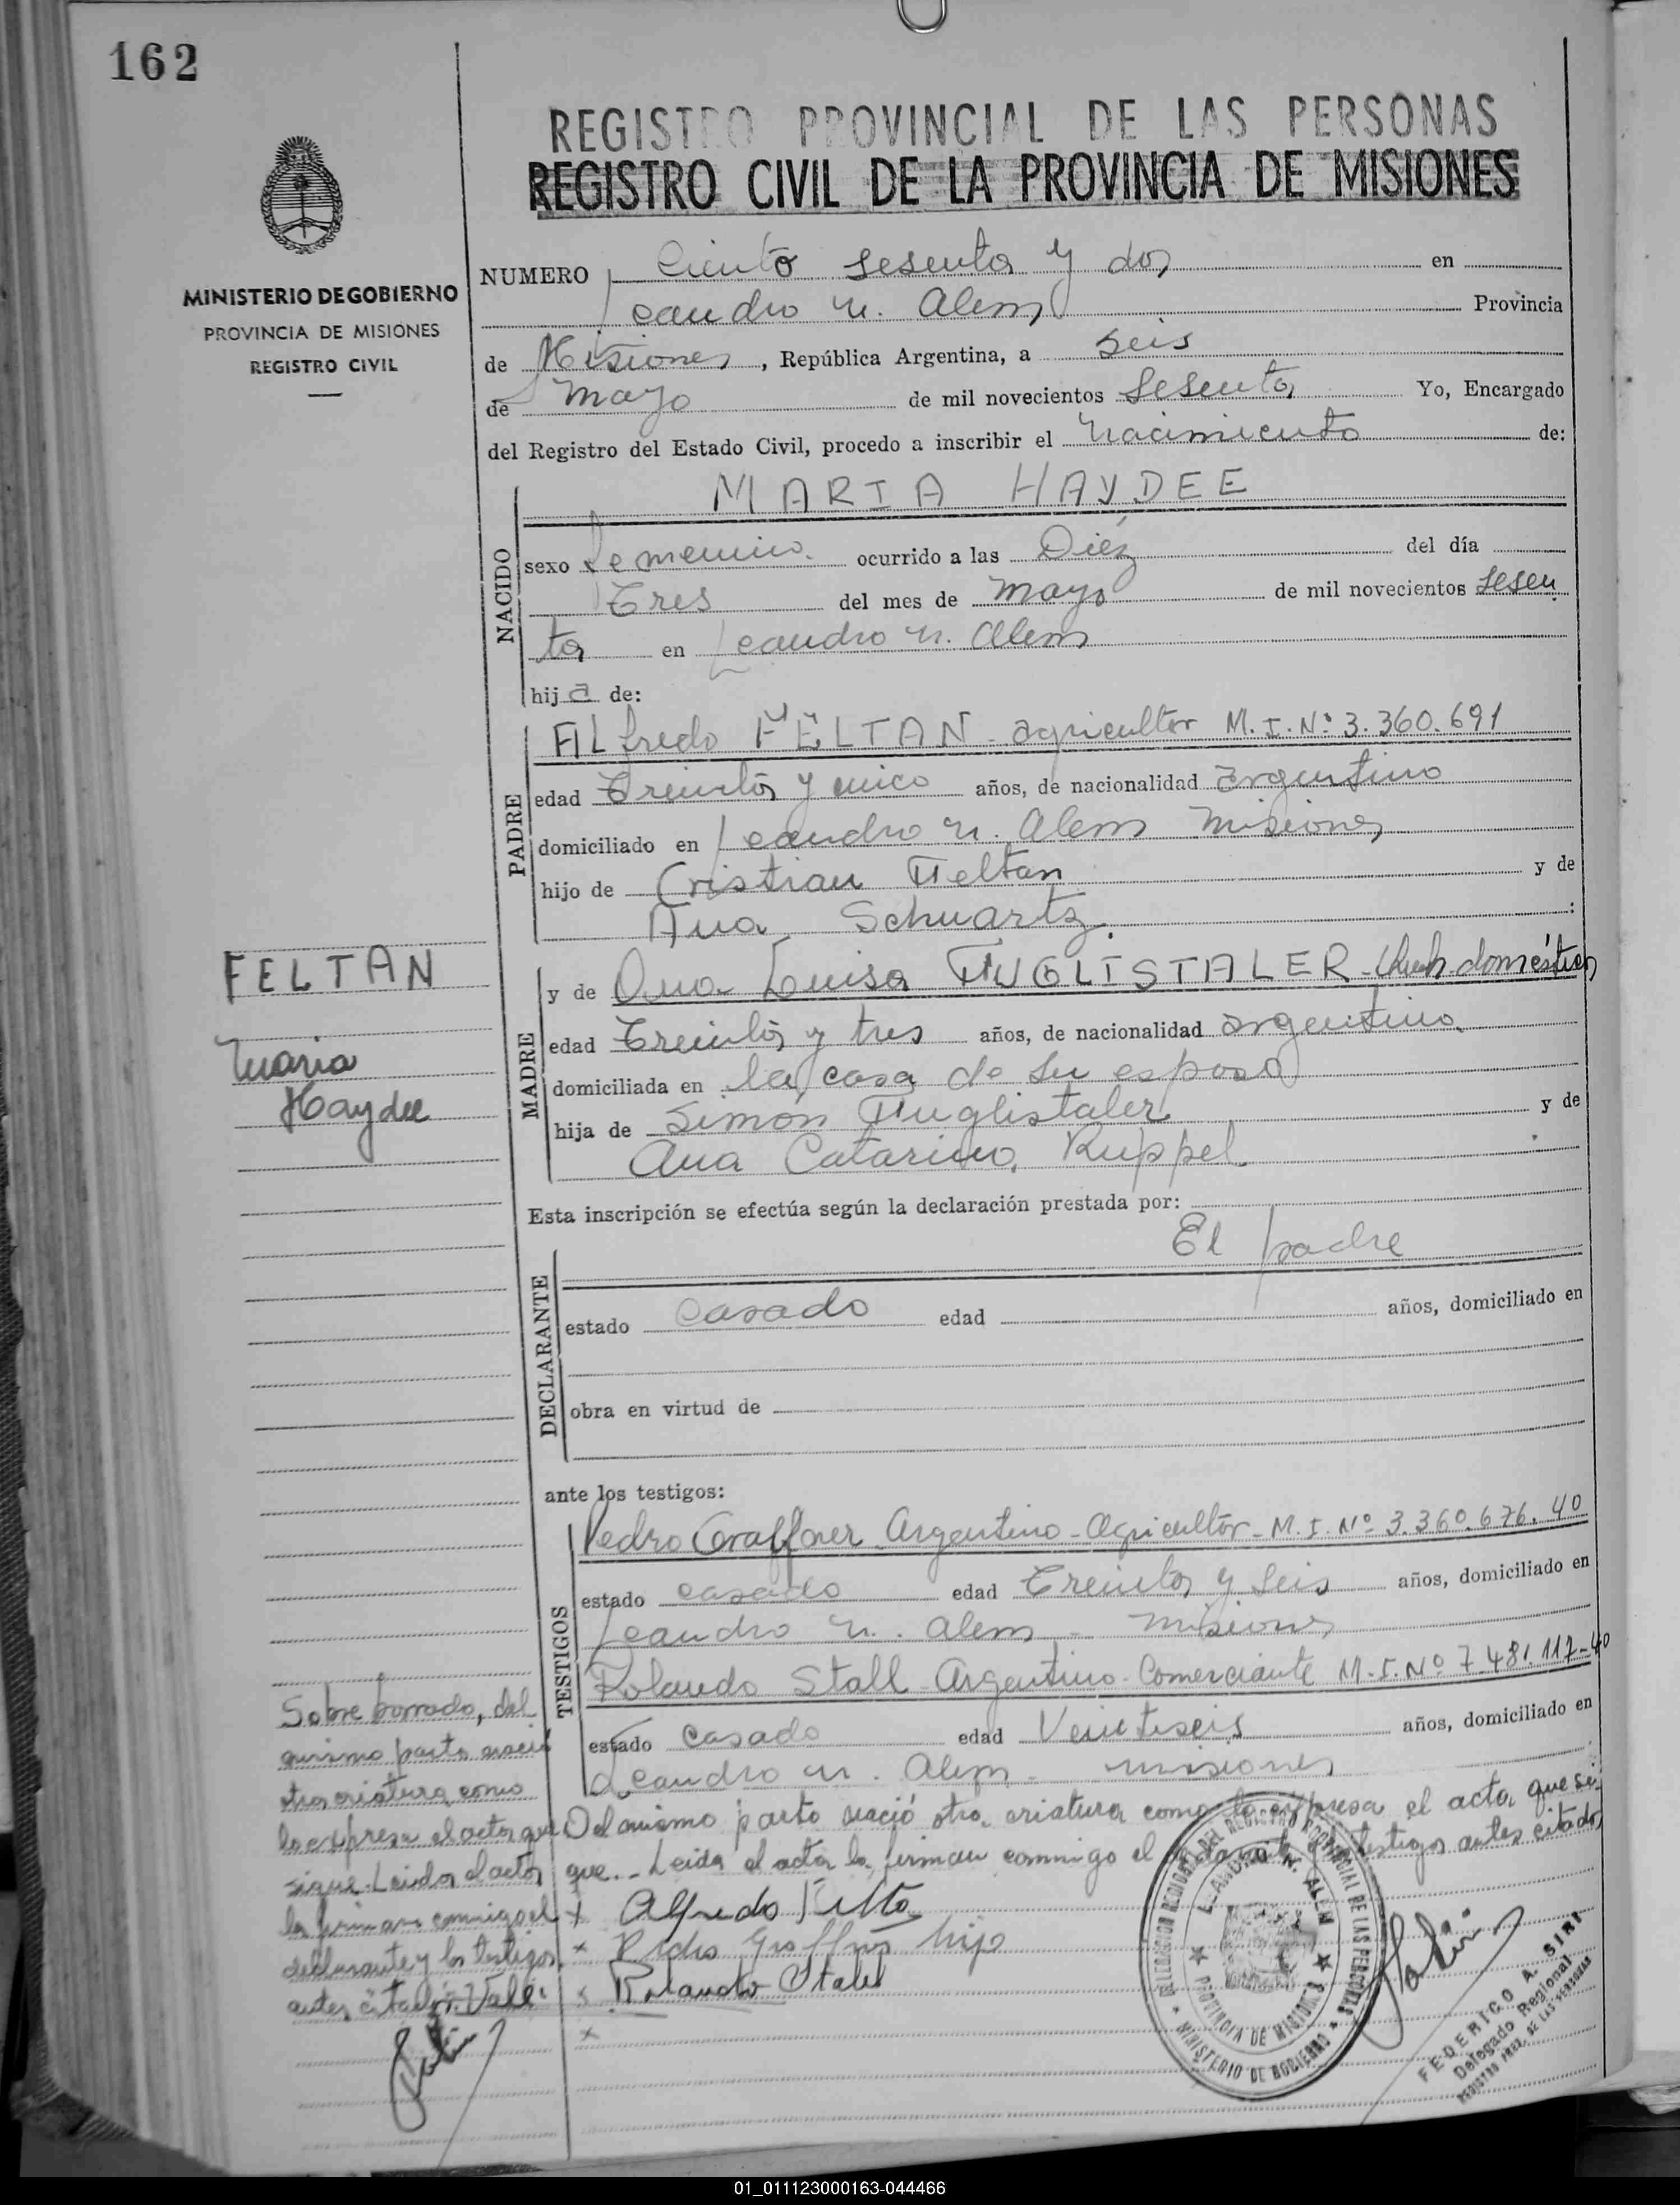 162
REGISTRO PROVINCIAL DE LAS PERSONAS
REGISTRO CIVIL DE LA PROVINCIA DE MISIONES
MINISTERIO DE GOBIERNO
PROVINCIA DE MISIONES
REGISTRO CIVIL
NUMERO Ciento sesenta y dos en
Leandro N. Alem Provincia
de Misiones, República Argentina, a seis
de mayo de mil novecientos sesenta Yo, Encargado
del Registro del Estado Civil, procedo a inscribir el nacimiento de:
NACIDO
MARIA HAYDEE
sexo femenino ocurrido a las Diéz del día
Tres del mes de mayo de mil novecientos sesen
ta en Leandro N. Alem
hija de:
PADRE
Alfredo FELTAN - agricultor M.I.Nº 3.360.691
edad Treinta y cinco años, de nacionalidad argentino
domiciliado en Leandro N. Alem Misiones
hijo de Cristian Feltan y de
Ana Schwartz :
FELTAN
Maria
Haydee
MADRE
y de Ana Luisa FUGLISTALER - Queh. domésticos
edad Treinta y tres años, de nacionalidad argentina
domiciliada en la casa de su esposo
hija de Simón Fuglistaler y de
Ana Catarina Ruppel
Esta inscripción se efectúa según la declaración prestada por:
DECLARANTE
El padre
estado casado edad años, domiciliado en
obra en virtud de
ante los testigos:
TESTIGOS
Pedro Graffner Argentino - Agricultor - M.I.Nº 3.360.676.40
estado casado edad Treinta y seis años, domiciliado en
Leandro N. Alem - Misiones
Rolando Stall - Argentino - Comerciante M.I.Nº 7.481.117-40
estado casado edad Veintiseis años, domiciliado en
Leandro N. Alem - misiones
Del mismo parto nació otra criatura como lo expresa el acta que si-
que.- Leida el acta la firman conmigo el declarante y testigos antes citados
Sobre borrado, del
mismo parto nació
otra criatura como
lo expresa el acta que
sigue. Leida el acta
la firman conmigo el
declarante y los testigos
antes citados. Vale.
x Alfredo
x Pedro hijo
x Rolando Stall
x
DELEGACION REGIONAL DEL REGISTRO PROVINCIAL DE LAS PERSONAS
LEANDRO N. ALEM
PROVINCIA DE MISIONES
MINISTERIO DE GOBIERNO
FEDERICO A. SIRI
Delegado Regional
REGISTRO PROV. DE LAS PERSONAS
01_011123000163-044466